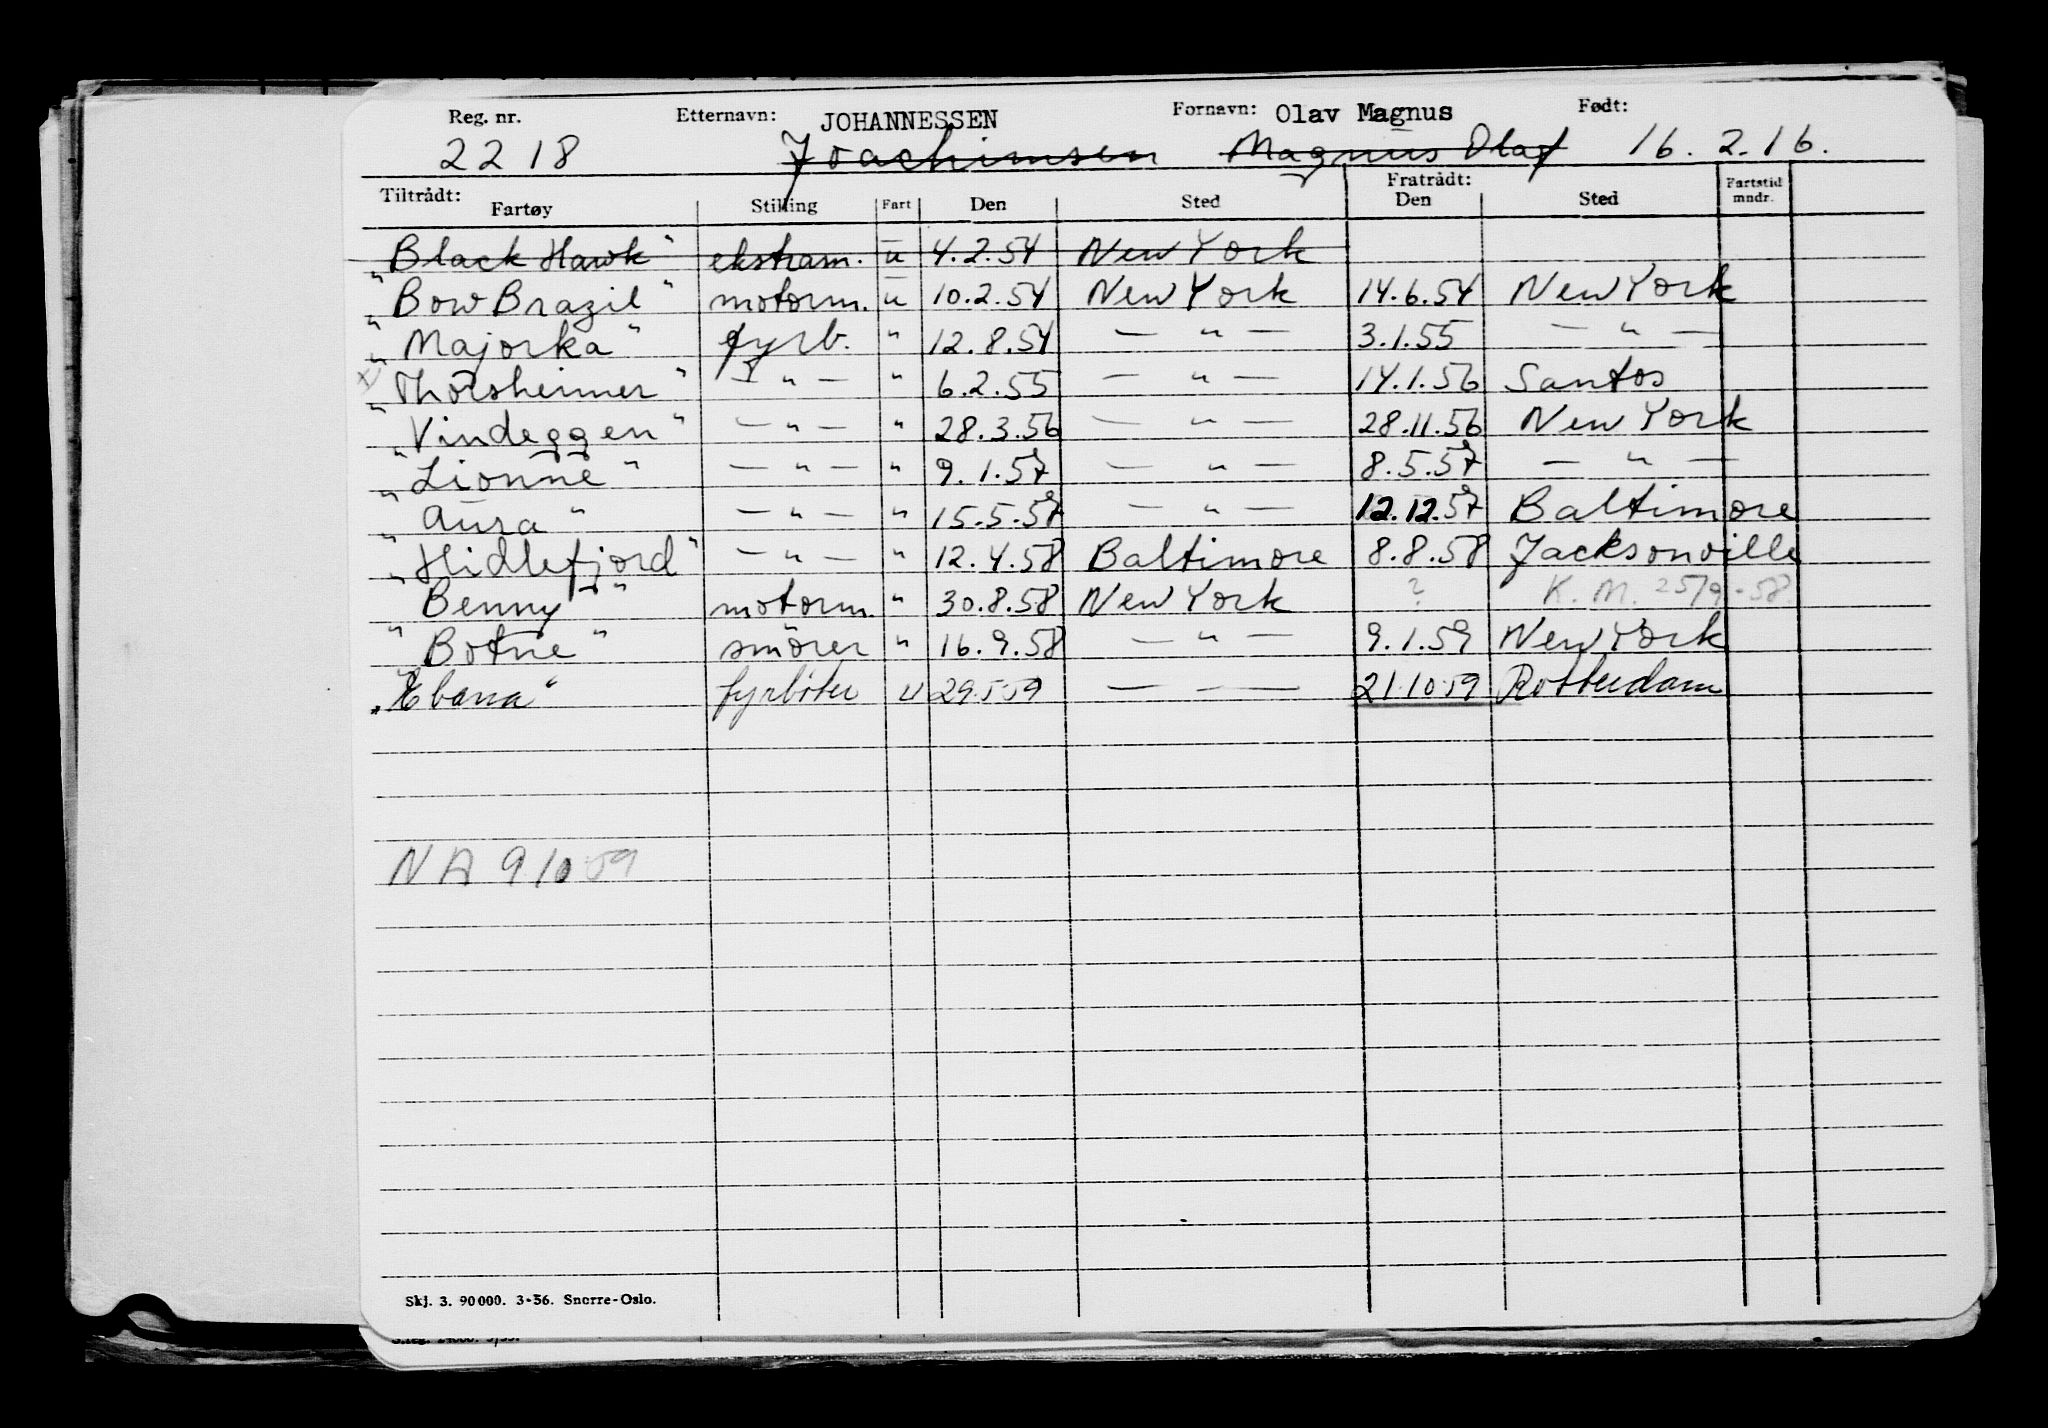 Reg. nr. Etternavn: JOHANNESSEN Fornavn: Olav Magnus Født:
2218 Joachimsen Magnus Olaf 16.2.16.
Tiltrådt: Fratrådt:
Fartøy Stilling Fart Den Sted Den Sted Fartstid mndr.
"Black Hawk" ekstram. u 4.2.54 New York
"Bow Brazil" motorm. u 10.2.54 New York 14.6.54 New York
"Majorka" fyrb. " 12.8.54 — " — 3.1.55 — " —
"Thorsheimer" — " — " 6.2.55 — " — 14.1.56 Santos
"Vindeggen" — " — " 28.3.56 — " — 28.11.56 New York
"Lionne" — " — " 9.1.57 — " — 8.5.57 — " —
"Aura" — " — " 15.5.57 — " — 12.12.57 Baltimore
"Hidlefjord" — " — " 12.4.58 Baltimore 8.8.58 Jacksonville
"Benny" motorm. " 30.8.58 New York ? K.M. 25/9-58.
"Botne" smörer " 16.9.58 — " — 9.1.59 New York
"Ebana" fyrböter u 29.5.59 — — — 21.10.59 Rotterdam
NA 9/10 59
Skj. 3. 90000. 3-56. Snorre-Oslo.